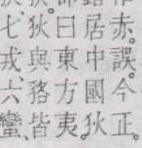 赤。誤。今正。
居中國。狄
曰東方夷。
狄與貉皆
七戎、六蠻、